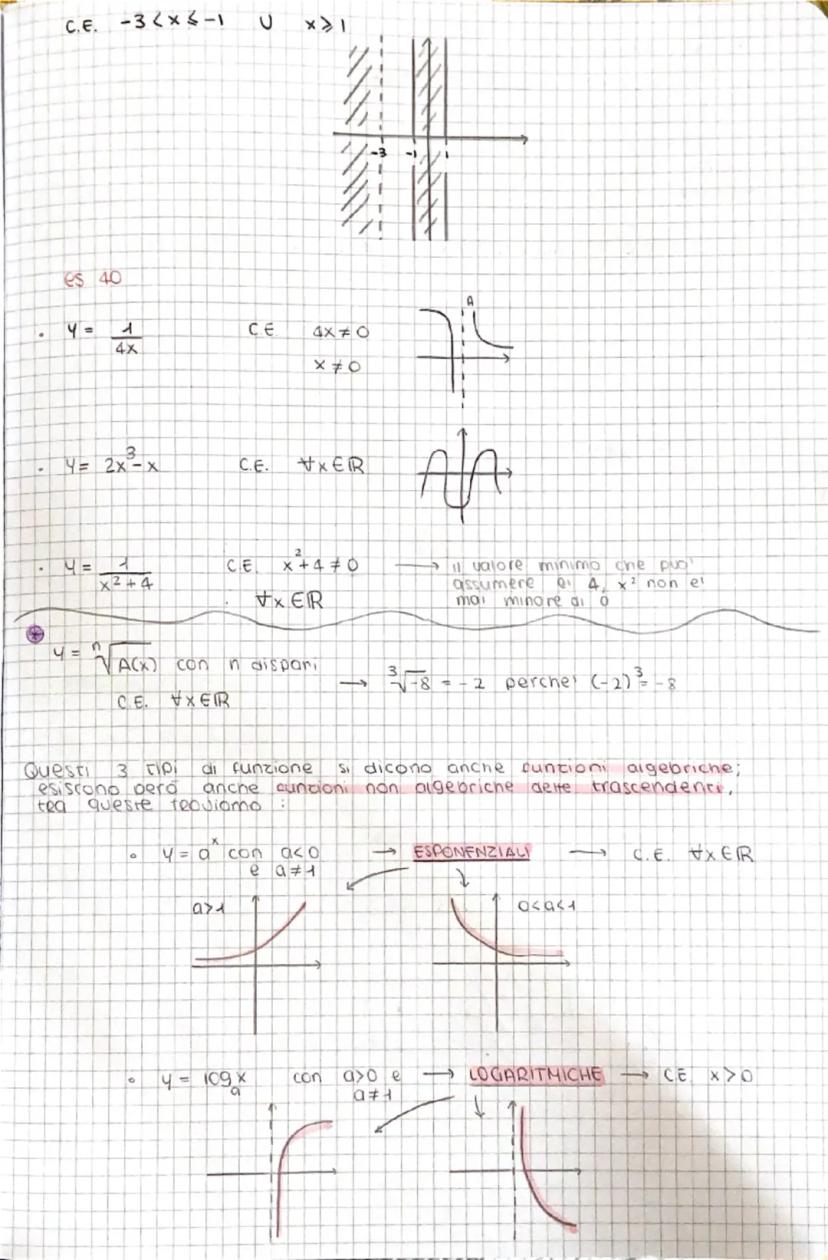 C.E. -3<x≤-1 U x≥1
-3 -1 1
es 40
A
• y = 1/4x C.E 4x≠0
x≠0
• y = 2x³-x C.E. ∀x∈ℝ
• y = 1/x²+4 C.E. x²+4≠0 → il valore minimo che puo'
assumere è 4, x² non e'
∀x∈ℝ mai minore di 0
y = ⁿ√A(x) con n dispari → ³√-8 = -2 perche' (-2)³=-8
C.E. ∀x∈ℝ
Questi 3 tipi di funzione si dicono anche funzioni algebriche;
esistono però anche funzioni non algebriche dette trascendenti,
tra queste troviamo :
• y = aˣ con a<0 → ESPONENZIALI → C.E. ∀x∈ℝ
e a≠1
a>1 0<a<1
• y = logₐx con a>0 e → LOGARITMICHE → CE x>0
a≠1